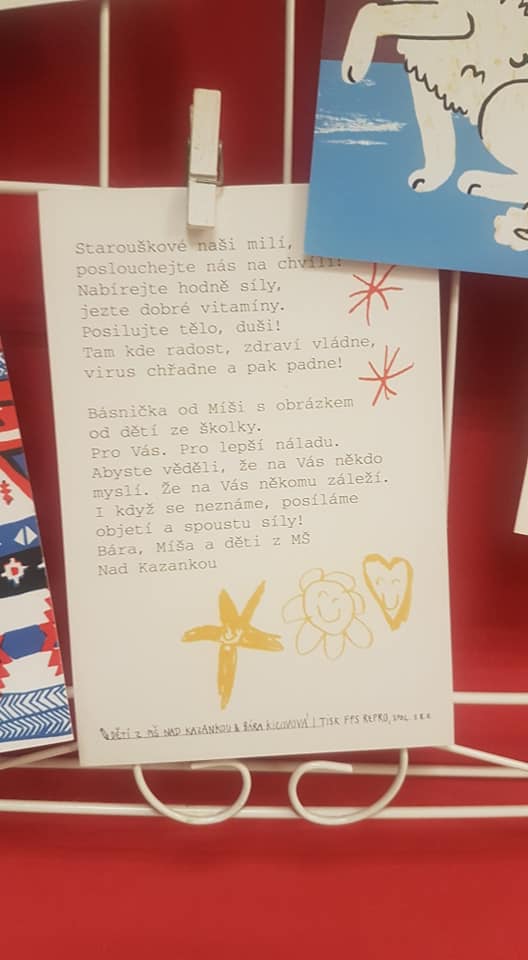 Starouškové naši milí,
poslouchejte nás na chvíli!
Nabírejte hodně síly,
jezte dobré vitamíny.
Posilujte tělo, duši!
Tam kde radost, zdraví vládne,
virus chřadne a pak padne!
Básnička od Míši s obrázkem
od dětí ze školky.
Pro Vás. Pro lepší náladu.
Abyste věděli, že na Vás někdo
myslí. Že na Vás někomu záleží.
I když se neznáme, posíláme
objetí a spoustu síly!
Bára, Míša a děti z MŠ
Nad Kazankou
DĚTÍ Z MŠ NAD KAZANKOU & BÁRA | TISK FPS REPRO, SPOL. S R.O.